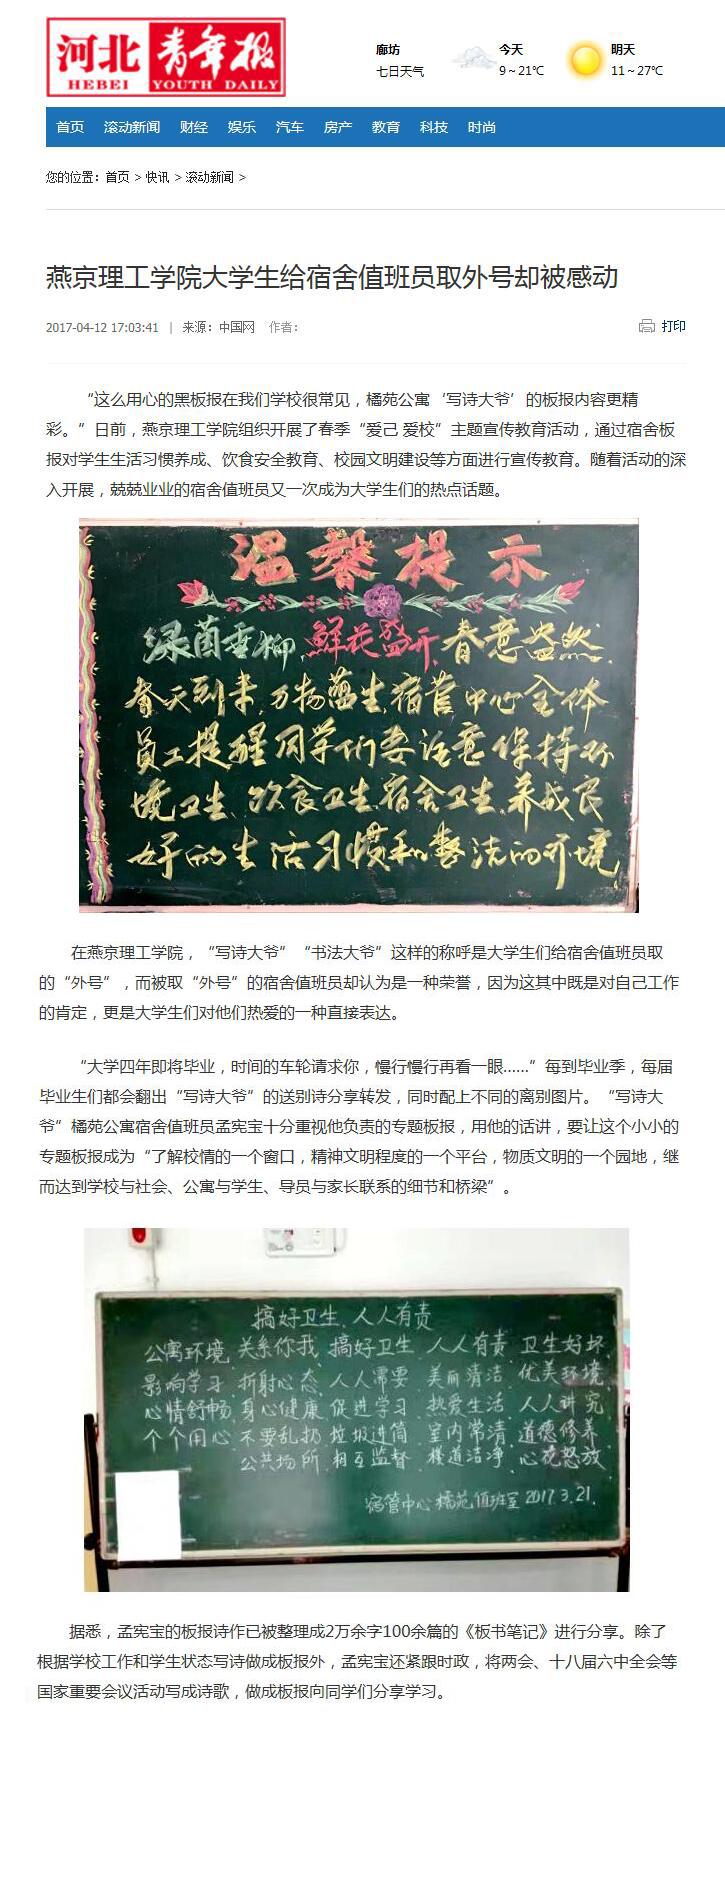 河北青年报
HEBEI YOUTH DAILY
廊坊 今天 明天
七日天气 9～21℃ 11～27℃
首页 滚动新闻 财经 娱乐 汽车 房产 教育 科技 时尚
您的位置：首页 > 快讯 > 滚动新闻 >
燕京理工学院大学生给宿舍值班员取外号却被感动
2017-04-12 17:03:41 | 来源：中国网 作者：
打印
“这么用心的黑板报在我们学校很常见，橘苑公寓‘写诗大爷’的板报内容更精
彩。”日前，燕京理工学院组织开展了春季“爱己 爱校”主题宣传教育活动，通过宿舍板
报对学生生活习惯养成、饮食安全教育、校园文明建设等方面进行宣传教育。随着活动的深
入开展，兢兢业业的宿舍值班员又一次成为大学生们的热点话题。
温馨提示
绿茵垂柳，鲜花盛开，春意盎然．
春天到来，万物萌生，宿管中心全体
员工提醒同学们要注意保持环
境卫生、饮食卫生、宿舍卫生、养成良
好的生活习惯和整洁的环境．
在燕京理工学院，“写诗大爷”“书法大爷”这样的称呼是大学生们给宿舍值班员取
的“外号”，而被取“外号”的宿舍值班员却认为是一种荣誉，因为这其中既是对自己工作
的肯定，更是大学生们对他们热爱的一种直接表达。
“大学四年即将毕业，时间的车轮请求你，慢行慢行再看一眼......”每到毕业季，每届
毕业生们都会翻出“写诗大爷”的送别诗分享转发，同时配上不同的离别图片。“写诗大
爷”橘苑公寓宿舍值班员孟宪宝十分重视他负责的专题板报，用他的话讲，要让这个小小的
专题板报成为“了解校情的一个窗口，精神文明程度的一个平台，物质文明的一个园地，继
而达到学校与社会、公寓与学生、导员与家长联系的细节和桥梁”。
搞好卫生．人人有责
公寓环境．关系你我．搞好卫生．人人有责．卫生好坏．
影响学习．折射心态．人人需要．美丽清洁．优美环境．
心情舒畅．身心健康．促进学习．热爱生活．人人讲究
个个用心．不要乱扔．垃圾进筒．室内常清．道德修养．
公共场所．相互监督．楼道洁净．心花怒放．
宿管中心橘苑值班室2017.3.21.
据悉，孟宪宝的板报诗作已被整理成2万余字100余篇的《板书笔记》进行分享。除了
根据学校工作和学生状态写诗做成板报外，孟宪宝还紧跟时政，将两会、十八届六中全会等
国家重要会议活动写成诗歌，做成板报向同学们分享学习。